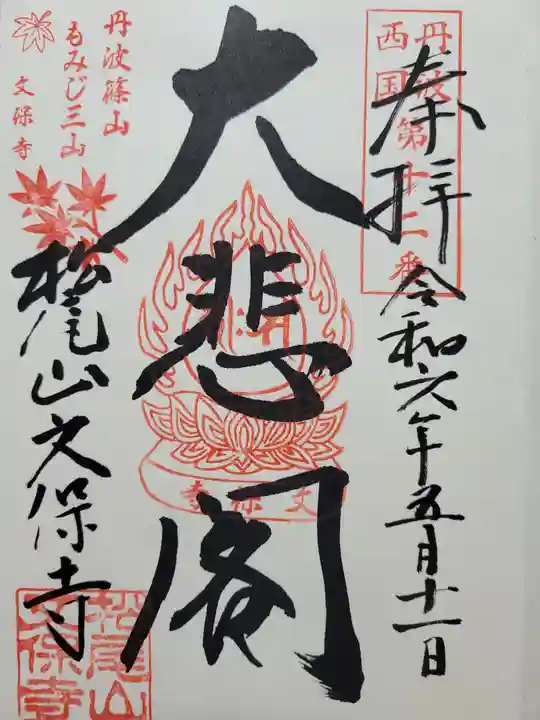 丹波
西国
第十二番
奉拝
令和六年五月十一日
大悲閣
文保寺
丹波篠山
もみじ三山
文保寺
松尾山文保寺
松尾山
文保寺